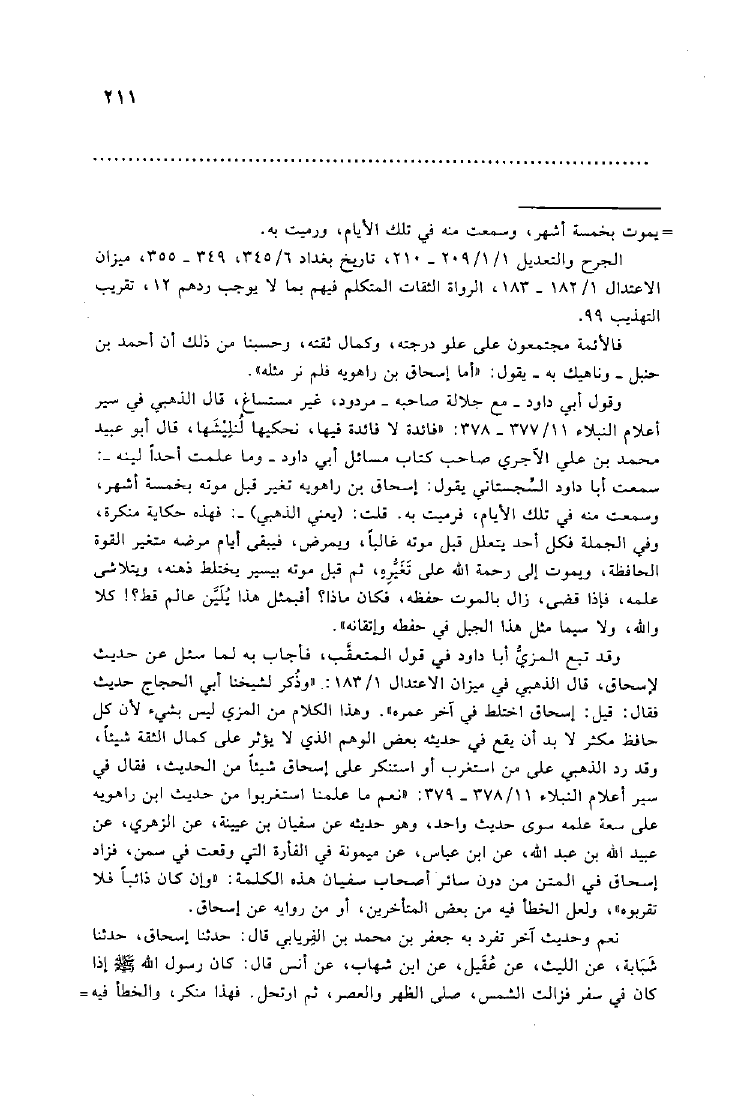 ٢١١
................................................................................
= يموت بخمسة أشهر، وسمعت منه في تلك الأيام، ورميت به.
الجرح والتعديل ١/١/ ٢٠٩ ـ ٢١٠، تاريخ بغداد ٦/ ٣٤٥، ٣٤٩ ـ ٣٥٥، ميزان
الاعتدال ١/ ١٨٢ ـ ١٨٣، الرواة الثقات المتكلم فيهم بما لا يوجب ردهم ١٢، تقريب
التهذيب ٩٩.
فالأئمة مجتمعون على علو درجته، وكمال ثقته، وحسبنا من ذلك أن أحمد بن
حنبل ـ وناهيك به ـ يقول: «أما إسحاق بن راهويه فلم نر مثله».
وقول أبي داود ـ مع جلالة صاحبه ـ مردود، غير مستساغ، قال الذهبي في سير
أعلام النبلاء ١١/ ٣٧٧ ـ ٣٧٨: «فائدة لا فائدة فيها، نحكيها لُنلِيْشَها، قال أبو عبيد
محمد بن علي الآجري صاحب كتاب مسائل أبي داود ـ وما علمت أحداً لينه ـ:
سمعت أبا داود السِّجستاني يقول: إسحاق بن راهويه تغير قبل موته بخمسة أشهر،
وسمعت منه في تلك الأيام، فرميت به. قلت: (يعني الذهبي) ـ: فهذه حكاية منكرة،
وفي الجملة فكل أحد يتعلل قبل موته غالباً، ويمرض، فيبقى أيام مرضه متغير القوة
الحافظة، ويموت إلى رحمة الله على تَغَيُّرِه، ثم قبل موته بيسير يختلط ذهنه، ويتلاشى
علمه، فإذا قضى، زال بالموت حفظه، فكان ماذا؟ أفبمثل هذا يُلَيَّن عالم قط؟! كلا
والله، ولا سيما مثل هذا الجبل في حفطه وإتقانه».
وقد تبع المزيُّ أبا داود في قول المتعقَّب، فأجاب به لما سئل عن حديث
لإسحاق، قال الذهبي في ميزان الاعتدال ١/ ١٨٣: «وذُكر لشيخنا أبي الحجاج حديث
فقال: قيل: إسحاق اختلط في آخر عمره». وهذا الكلام من المزي ليس بشيء لأن كل
حافظ مكثر لا بد أن يقع في حديثه بعض الوهم الذي لا يؤثر على كمال الثقة شيئاً،
وقد رد الذهبي على من استغرب أو استنكر على إسحاق شيئاً من الحديث، فقال في
سير أعلام النبلاء ١١/ ٣٧٨ ـ ٣٧٩: «نعم ما علمنا استغربوا من حديث ابن راهويه
على سعة علمه سوى حديث واحد، وهو حديثه عن سفيان بن عيينة، عن الزهري، عن
عبيد الله بن عبد الله، عن ابن عباس، عن ميمونة في الفأرة التي وقعت في سمن، فزاد
إسحاق في المتن من دون سائر أصحاب سفيان هذه الكلمة: «وإن كان ذائباً فلا
تقربوه»، ولعل الخطأ فيه من بعض المتأخرين، أو من روايه عن إسحاق.
نعم وحديث آخر تفرد به جعفر بن محمد بن الفِريابي قال: حدثنا إسحاق، حدثنا
شَبَابة، عن الليث، عن عُقَيل، عن ابن شهاب، عن أنس قال: كان رسول الله ﷺ إذا
كان في سفر فزالت الشمس، صلى الظهر والعصر، ثم ارتحل. فهذا منكر، والخطأ فيه =